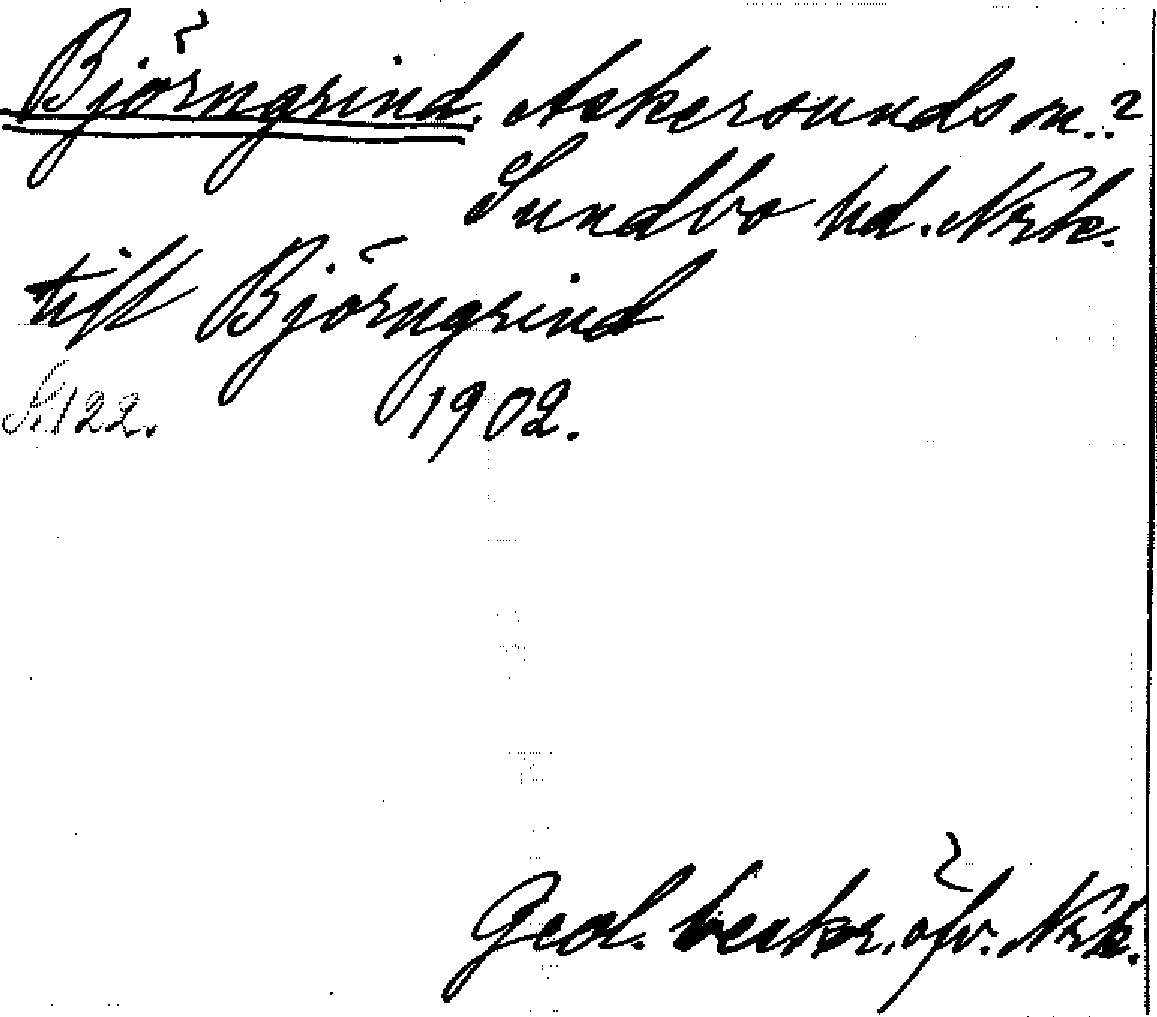 Björngrind. Askersunds m.?
Sundbo hd. Nrk.
tift Björngrind
S.122. 1902.
Geol. beskr. öfv. Nrk.